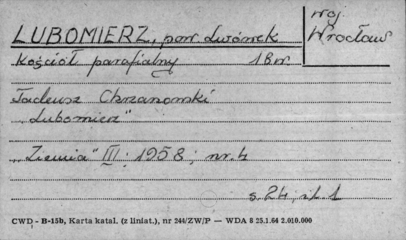 LUBOMIERZ, pow. Lwówek
woj.
Wrocław
Kościół parafialny 18 w.
Tadeusz Chrzanowski
„Lubomierz"
„Ziemia" III; 1958; nr. 4
s. 24; il. 1
CWD - B-15b, Karta katal. (z liniat.), nr 244/ZW/P — WDA 8 25.1.64 2.010.000